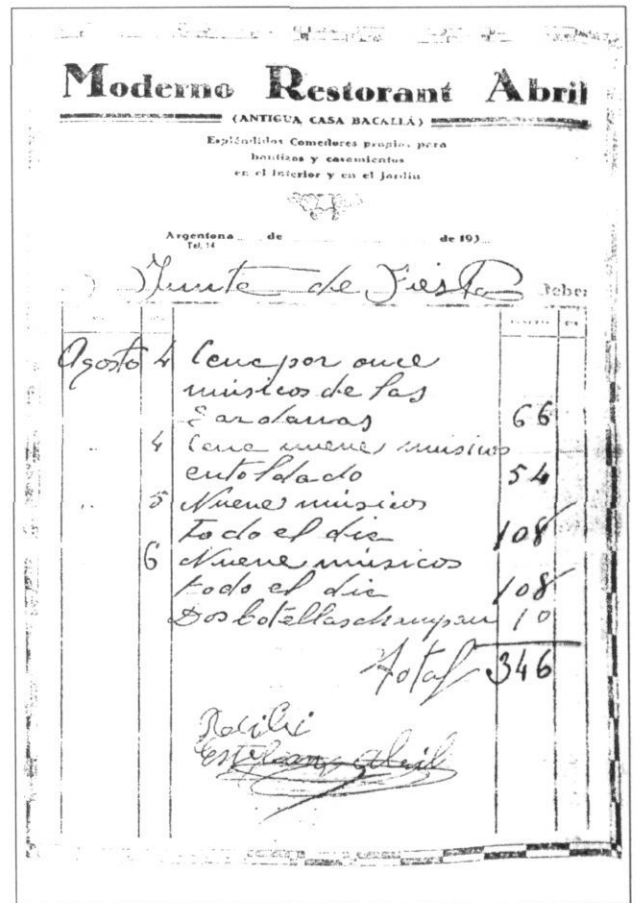 Moderno Restorant Abril
(ANTIGUA CASA BACALLÁ)
Espléndidos Comedores propios para
bautizos y casamientos
en el interior y en el jardin
Argentona de de 193
Tel. 14
Junta de Fiesta Debe:
Agosto 4 Cena por once
músicos de las
Sardanas 66
" 4 Cena nueve músicos
entoldado 54
" 5 Nueve músicos
todo el dia 108
6 Nueve músicos
todo el dia 108
Dos botellas champan 10
Total 346
Recibi
Esteban Abril